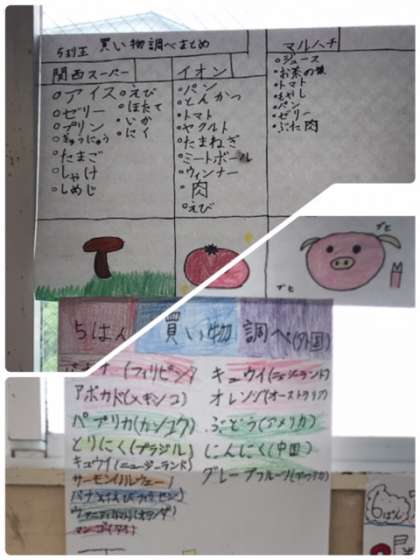 5班 買い物調べまとめ
関西スーパー
○アイス
○ゼリー
○プリン
○ぎゅうにゅう
○たまご
○しゃけ
○しめじ
○えび
○ほたて
○いか
○にく
イオン
○パン
○とんかつ
○トマト
○ヤクルト
○たまねぎ
○ミートボール
○ウィンナー
○肉
○えび
マルハチ
○ジュース
○お茶の
○トマト
○もやし
○パン
○ゼリー
○ぶた肉
ブヒ
ブヒ
5はん 買い物 調べ(外国)
(フィリピン)
アボカド(メキシコ)
パプリカ(カンコク)
とりにく(ブラジル)
キュウイ(ニュージーランド)
サーモン(ノルウェー)
マンゴ(タイ)
キュウイ(ニュージーランド)
オレンジ(オーストラリア)
ぶどう(アメリカ)
にんにく(中国)
グレープフルーツ
6ぱん